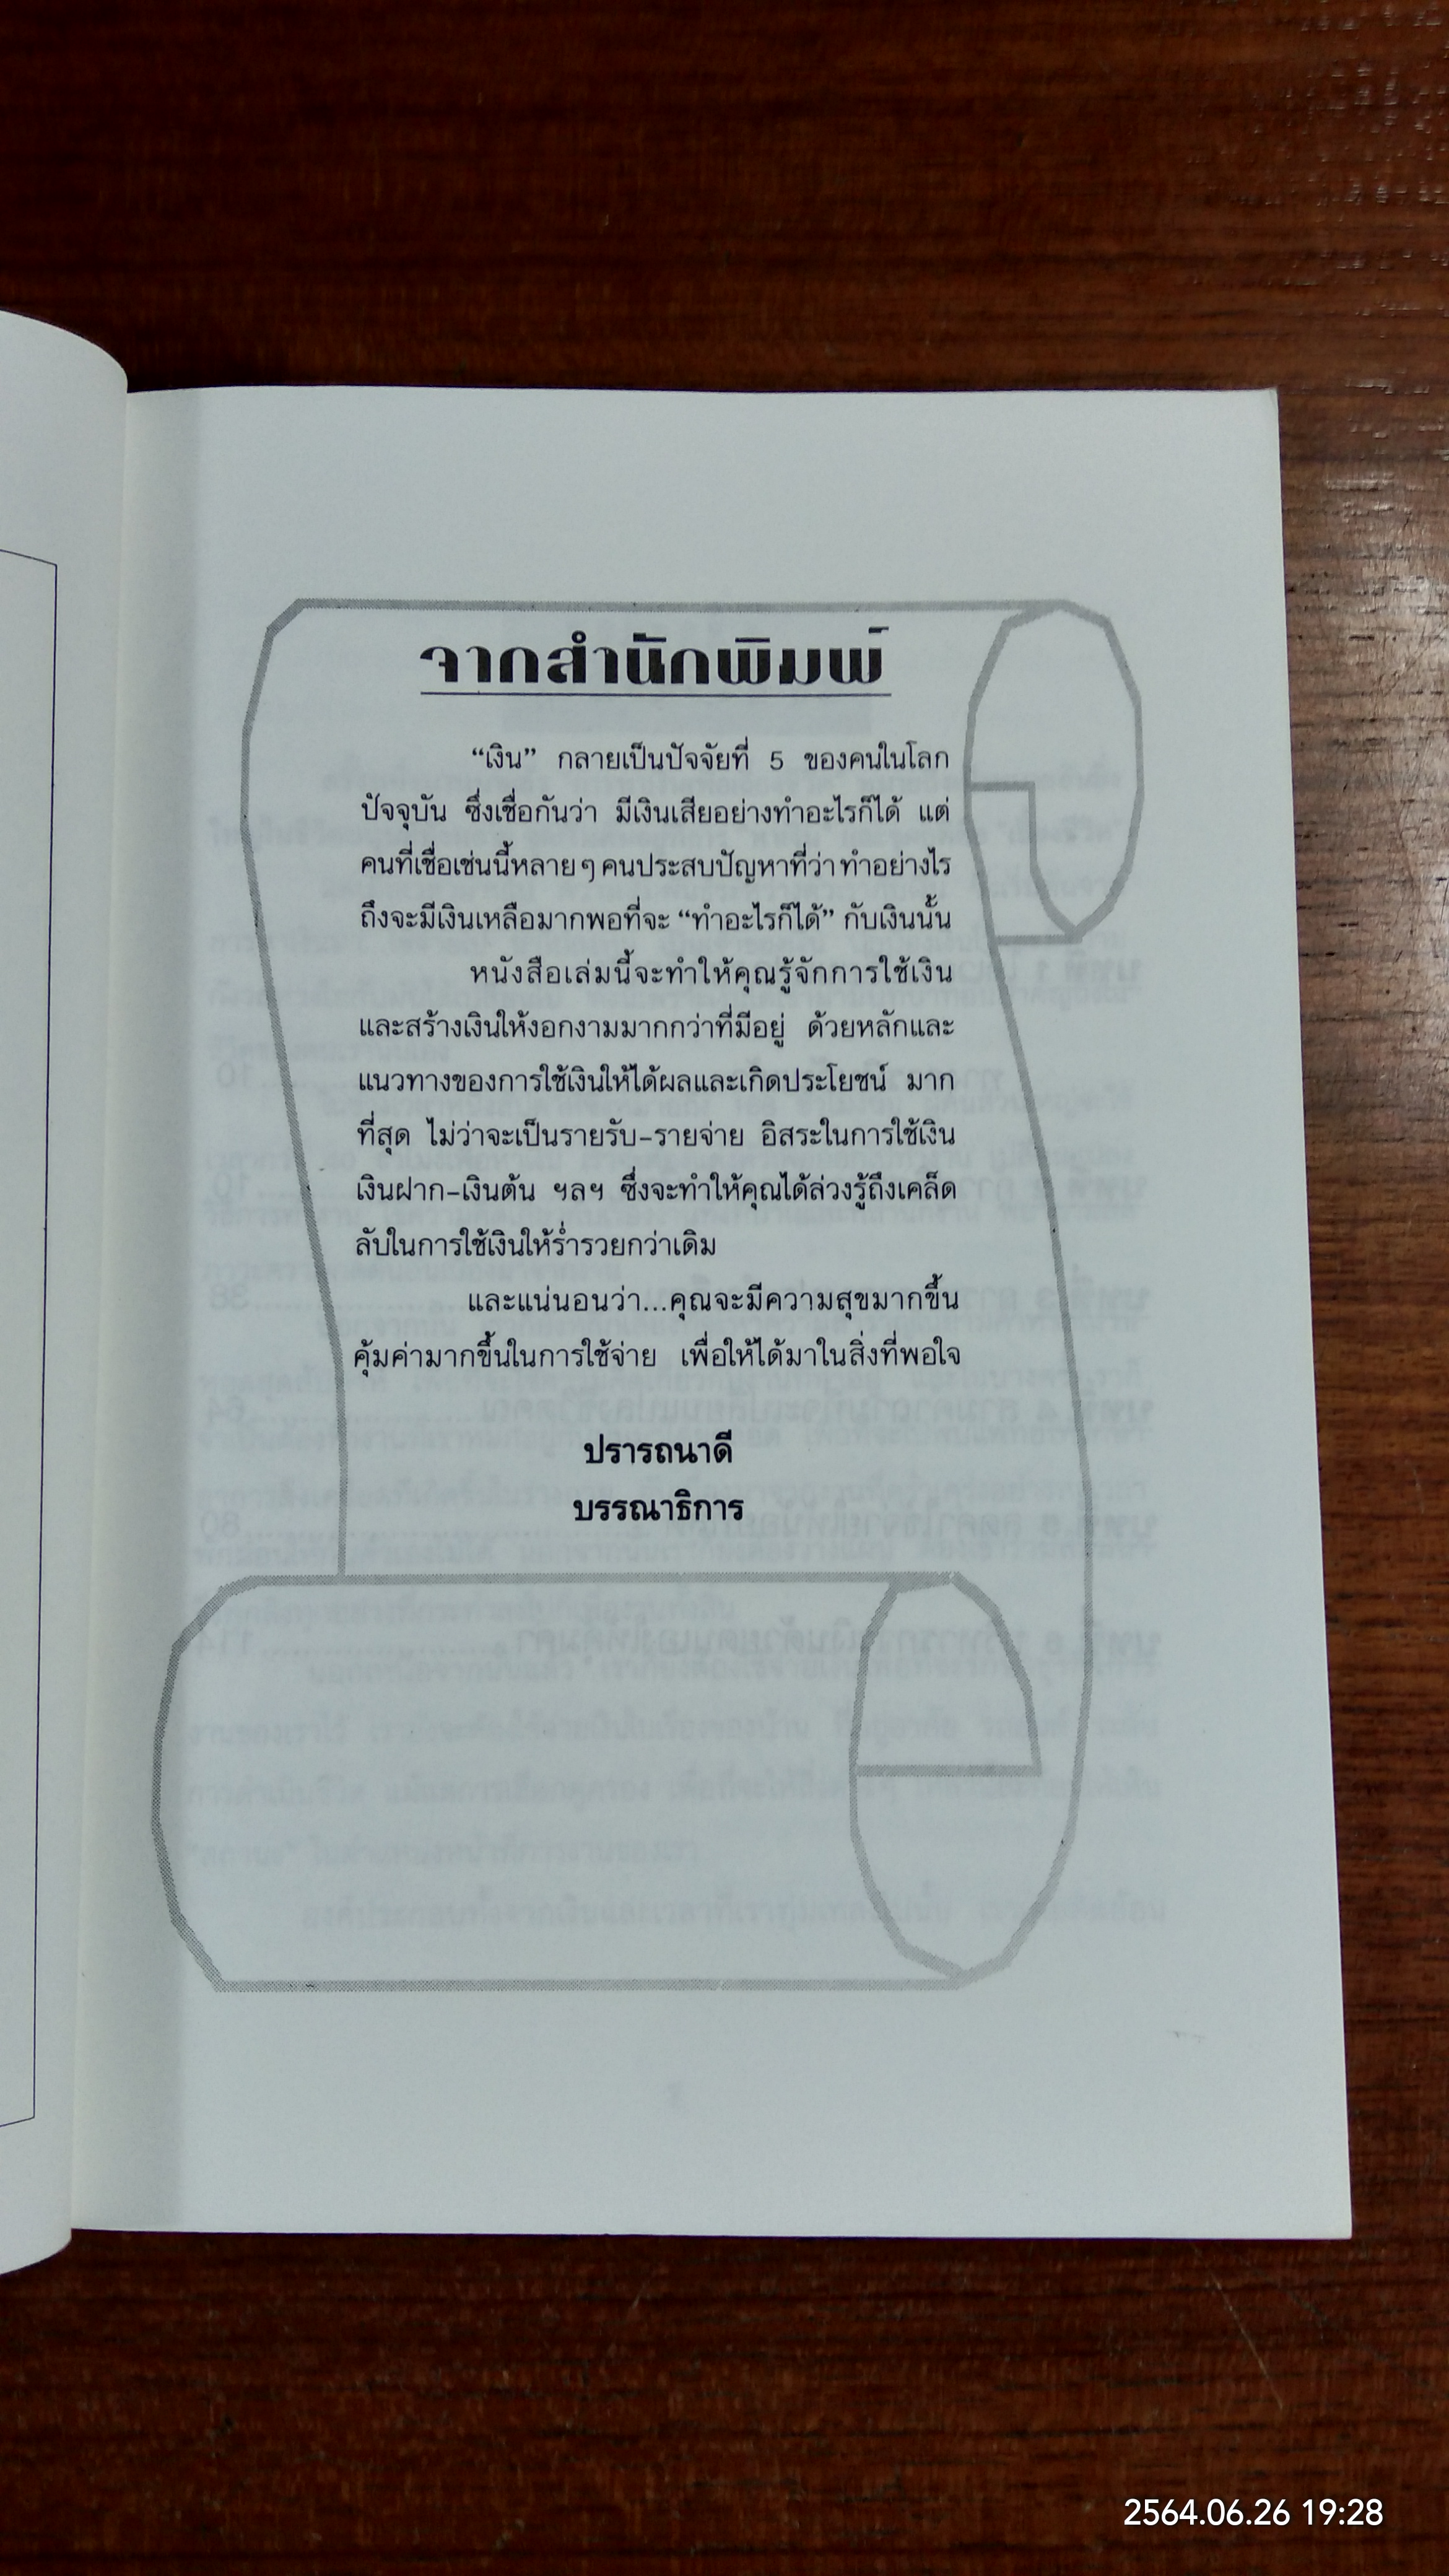 จากสำนักพิมพ์
“เงิน” กลายเป็นปัจจัยที่ 5 ของคนในโลก
ปัจจุบัน ซึ่งเชื่อกันว่า มีเงินเสียอย่างทำอะไรก็ได้ แต่
คนที่เชื่อเช่นนี้หลายๆ คนประสบปัญหาที่ว่า ทำอย่างไร
ถึงจะมีเงินเหลือมากพอที่จะ “ทำอะไรก็ได้” กับเงินนั้น
หนังสือเล่มนี้จะทำให้คุณรู้จักการใช้เงิน
และสร้างเงินให้งอกงามมากกว่าที่มีอยู่ ด้วยหลักและ
แนวทางของการใช้เงินให้ได้ผลและเกิดประโยชน์ มาก
ที่สุด ไม่ว่าจะเป็นรายรับ-รายจ่าย อิสระในการใช้เงิน
เงินฝาก-เงินต้น ฯลฯ ซึ่งจะทำให้คุณได้ล่วงรู้ถึงเคล็ด
ลับในการใช้เงินให้ร่ำรวยกว่าเดิม
และแน่นอนว่า...คุณจะมีความสุขมากขึ้น
คุ้มค่ามากขึ้นในการใช้จ่าย เพื่อให้ได้มาในสิ่งที่พอใจ
ปรารถนาดี
บรรณาธิการ
2564.06.26 19:28